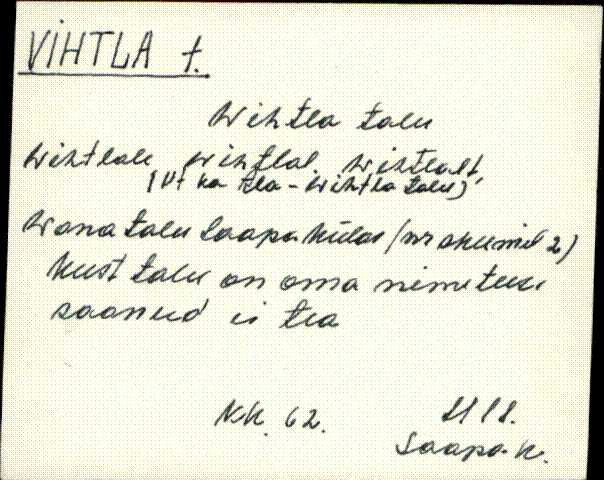 VIHTLA t.
Wihtla talu
Wihtlale, Wihtlal, Wihtlalt,
(Vt ka tla - Wihtla talu)
Wana talu Laapa külas (nr skeemil 2)
kust talu on oma nimetuse
saanud ei tea
KK. 62.
Laapa k.